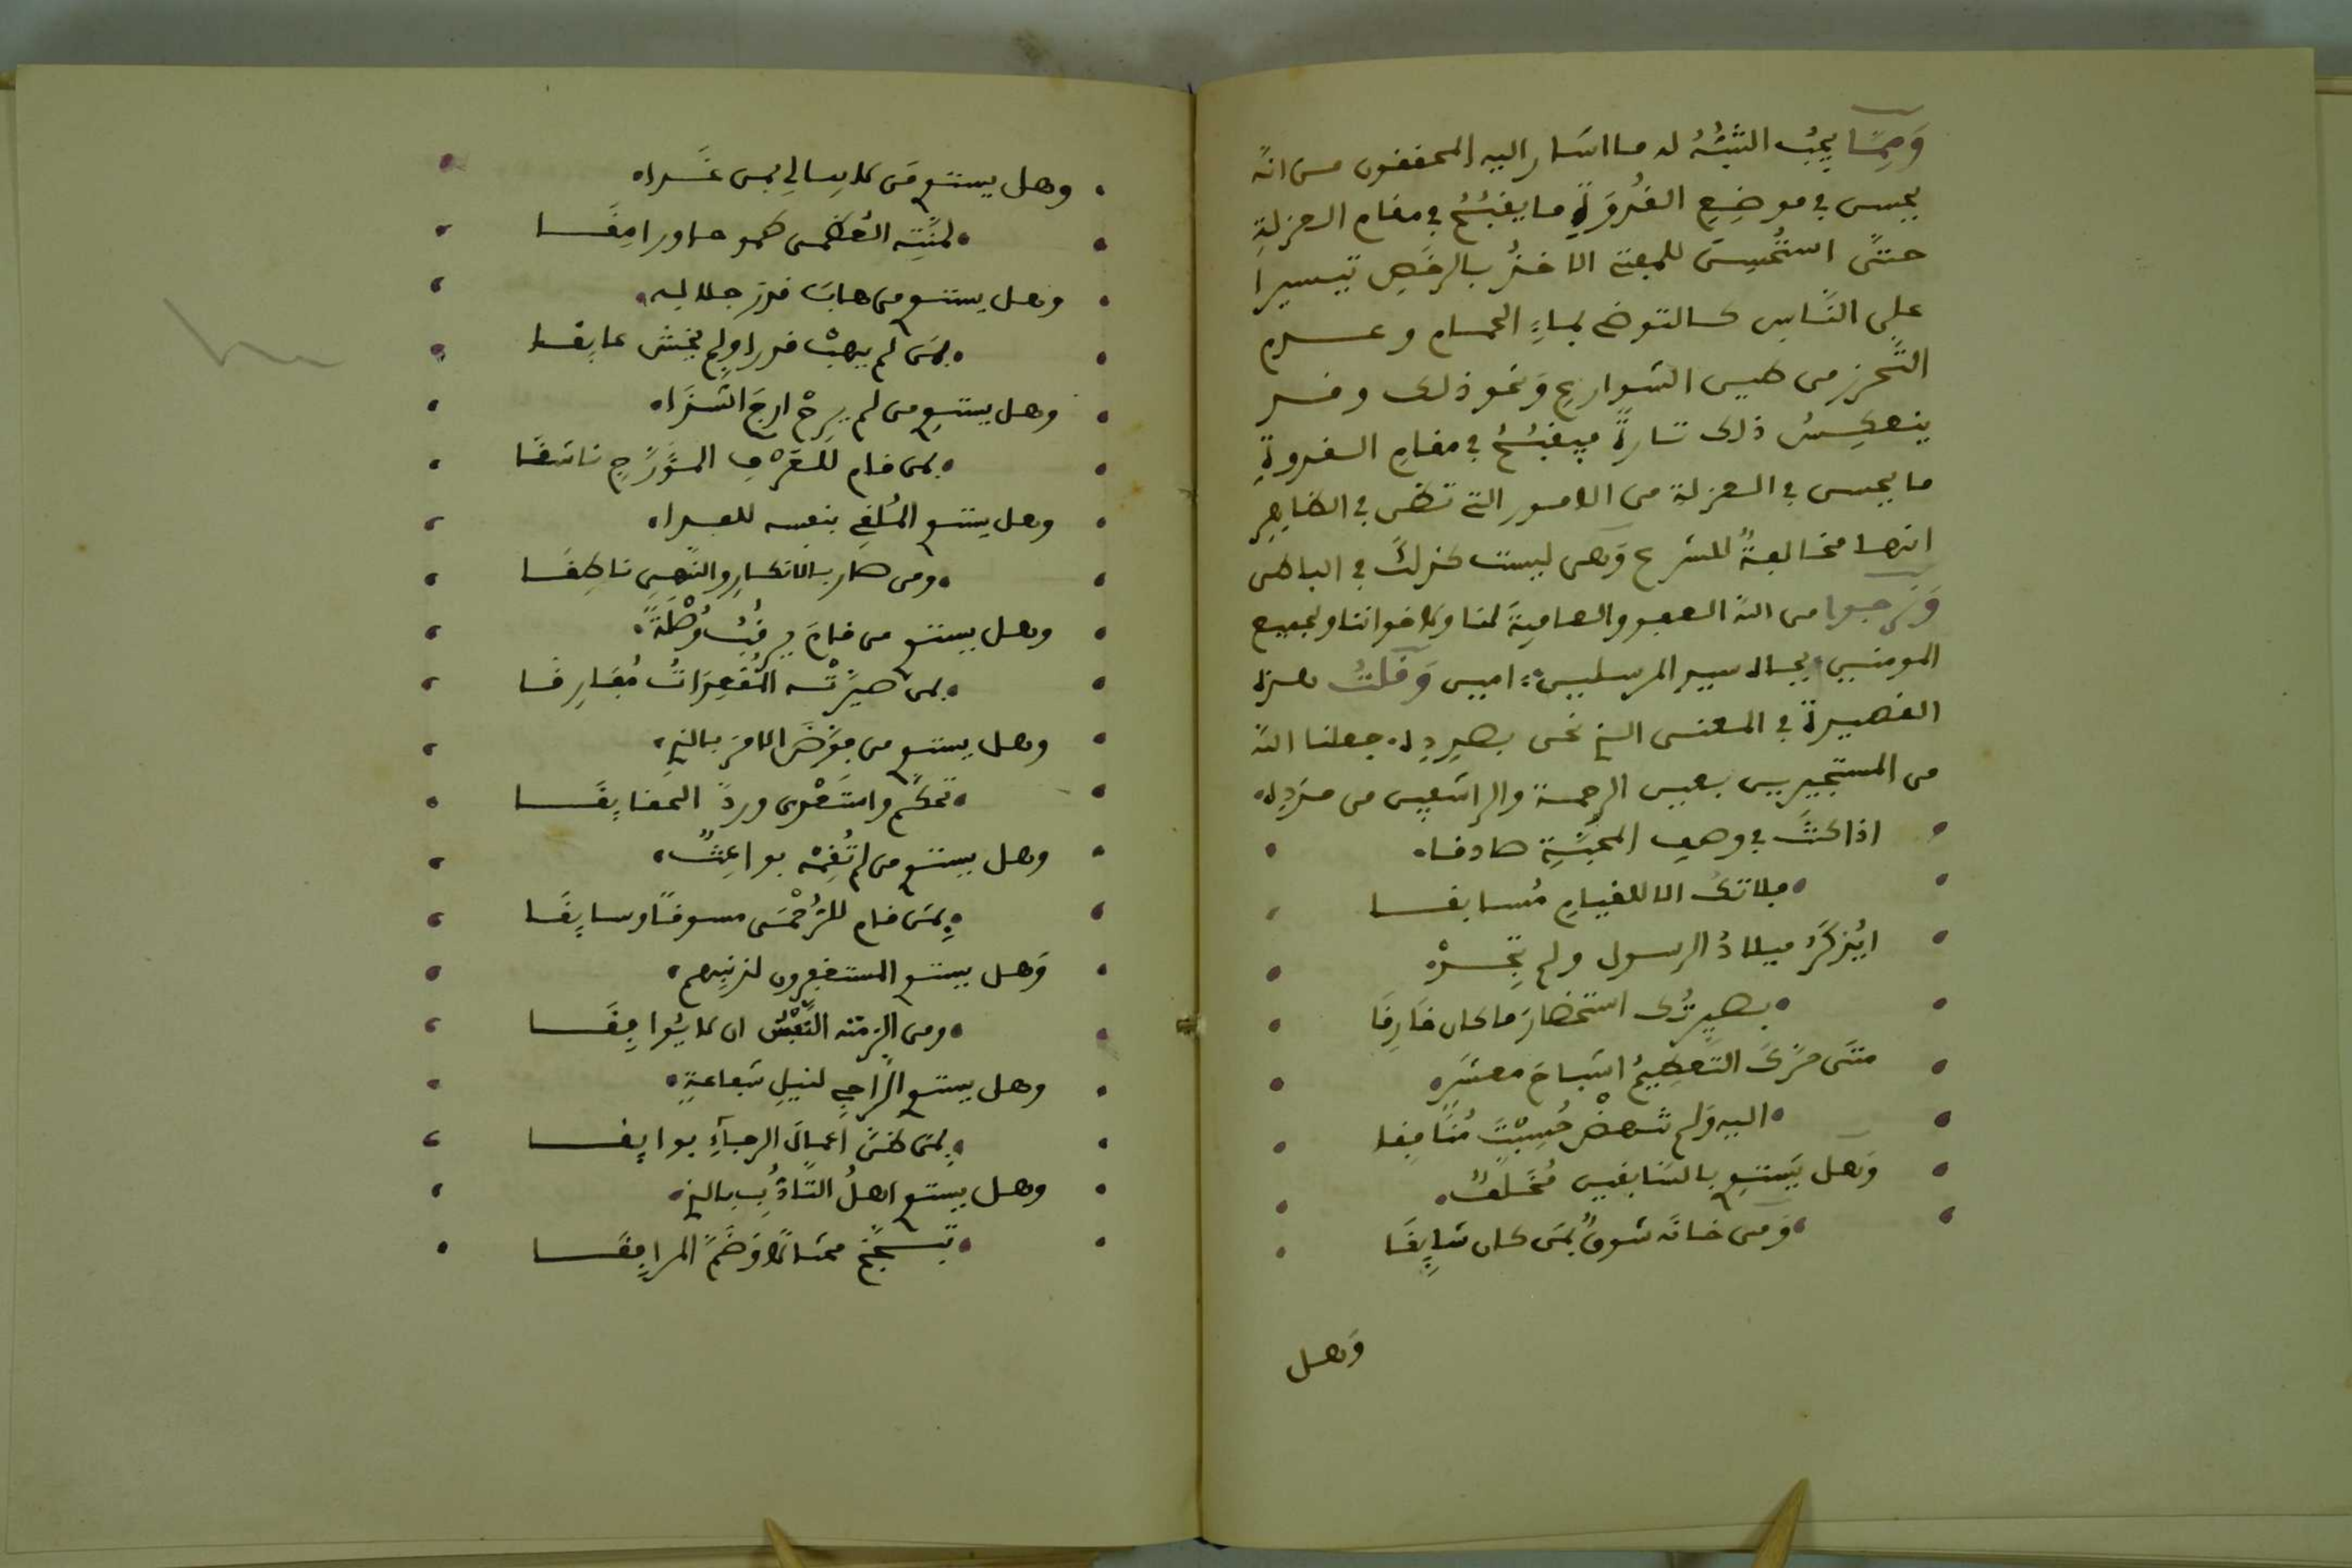 وَمِمَّا يجبُ التنبُّهُ له ما اشار اليه المحققون من انّه
يحسن في موضِعِ القُدْوَةِ ما يقبُحُ في مقام العزلةِ
حتّى استُحسِنَ للمفتي الاخذُ بالرخَصِ تيسيرا
على النّاس كالتوضي بماءِ الحمام وعدم
التّحرز من طين الشوارعِ وَنحو ذلك وقد
ينعكِسُ ذلك تارةً فيقبُحُ في مقامِ القدوةِ
ما يحسن في العزلة من الامور التي تظن في الظاهِرِ
انها مخالفةٌ للشرع وَهى ليست كذلك في الباطن
وَنرجوا من الله العفو والعافيةَ لنا ولاخواننا ولجميع
المومنين بجاه سيد المرسلين امين وَقلتُ هذه
القصيدةَ في المعنى الذي نحن بصدِدِه جعلنا الله
من المستجيرين بعين الرحمة والراشفين من مَدَدِه
اذا كنتَ في وصفِ المحبَّةِ صادقا
فلا تكُ الا للقيامِ مُسابقا
ايُذكَرُ ميلادُ الرسول ولم تَجِدْ
بصدرك استحضارَ ما كان فارِقَا
متَى حرَّكَ التعظِيمُ اشباحَ معشَرٍ
اليه وَلم تنهضْ حُسِبْتَ مُنَافِقا
وَهل يَستوِي بالسّابقين مُخَلَّفٌ
وَمن خانَه شوقٌ بمَن كان شَايِقَا
وَهل
وهل يستوي مَن لا يبالي بمن غَدا
لمنّتِه العُظمى كموحا ورامِقَا
وهل يستوي من هابَ قدرَ جلاله
بمَن لم يهبْ قدرا ولم يخش عايقا
وهل يستوي من لم يرحْ ارجَ الشذا
بمن قام للعَرْفِ المؤرَّجِ ناشقَا
وهل يستوي المُلقي بنفسه للعدا
ومن صار بالانكسارِ والنّهيِ ناطِقَا
وهل يستوي من قامَ يرقبُ وُصْلَةً
بمن صيرَّتْه المُقعِدَاتُ مُفَارِقَا
وهل يستوي من فوَّضَ الامرَ بالذي
تحكَّم واستَهْوى وردّ الحقايِقَا
وهل يستوي من لم تُقِمْه بواعِثٌ
بِمَن قام للرُّحْمَى مسوقاً وسايِقَا
وَهل يستوي المستغفِرون لذنبهم
ومن الزمته النَّفْسُ ان لا يُوافِقَا
وهل يستوي الرّاجي لنيلِ شفاعةٍ
بِمَن ظنّ اعمالَ الرجآءِ بوايقا
وهل يستوي اهلُ التّادُّبِ بالذي
تبجَّحَ مختالًا وَضَمَّ المرافِقَا